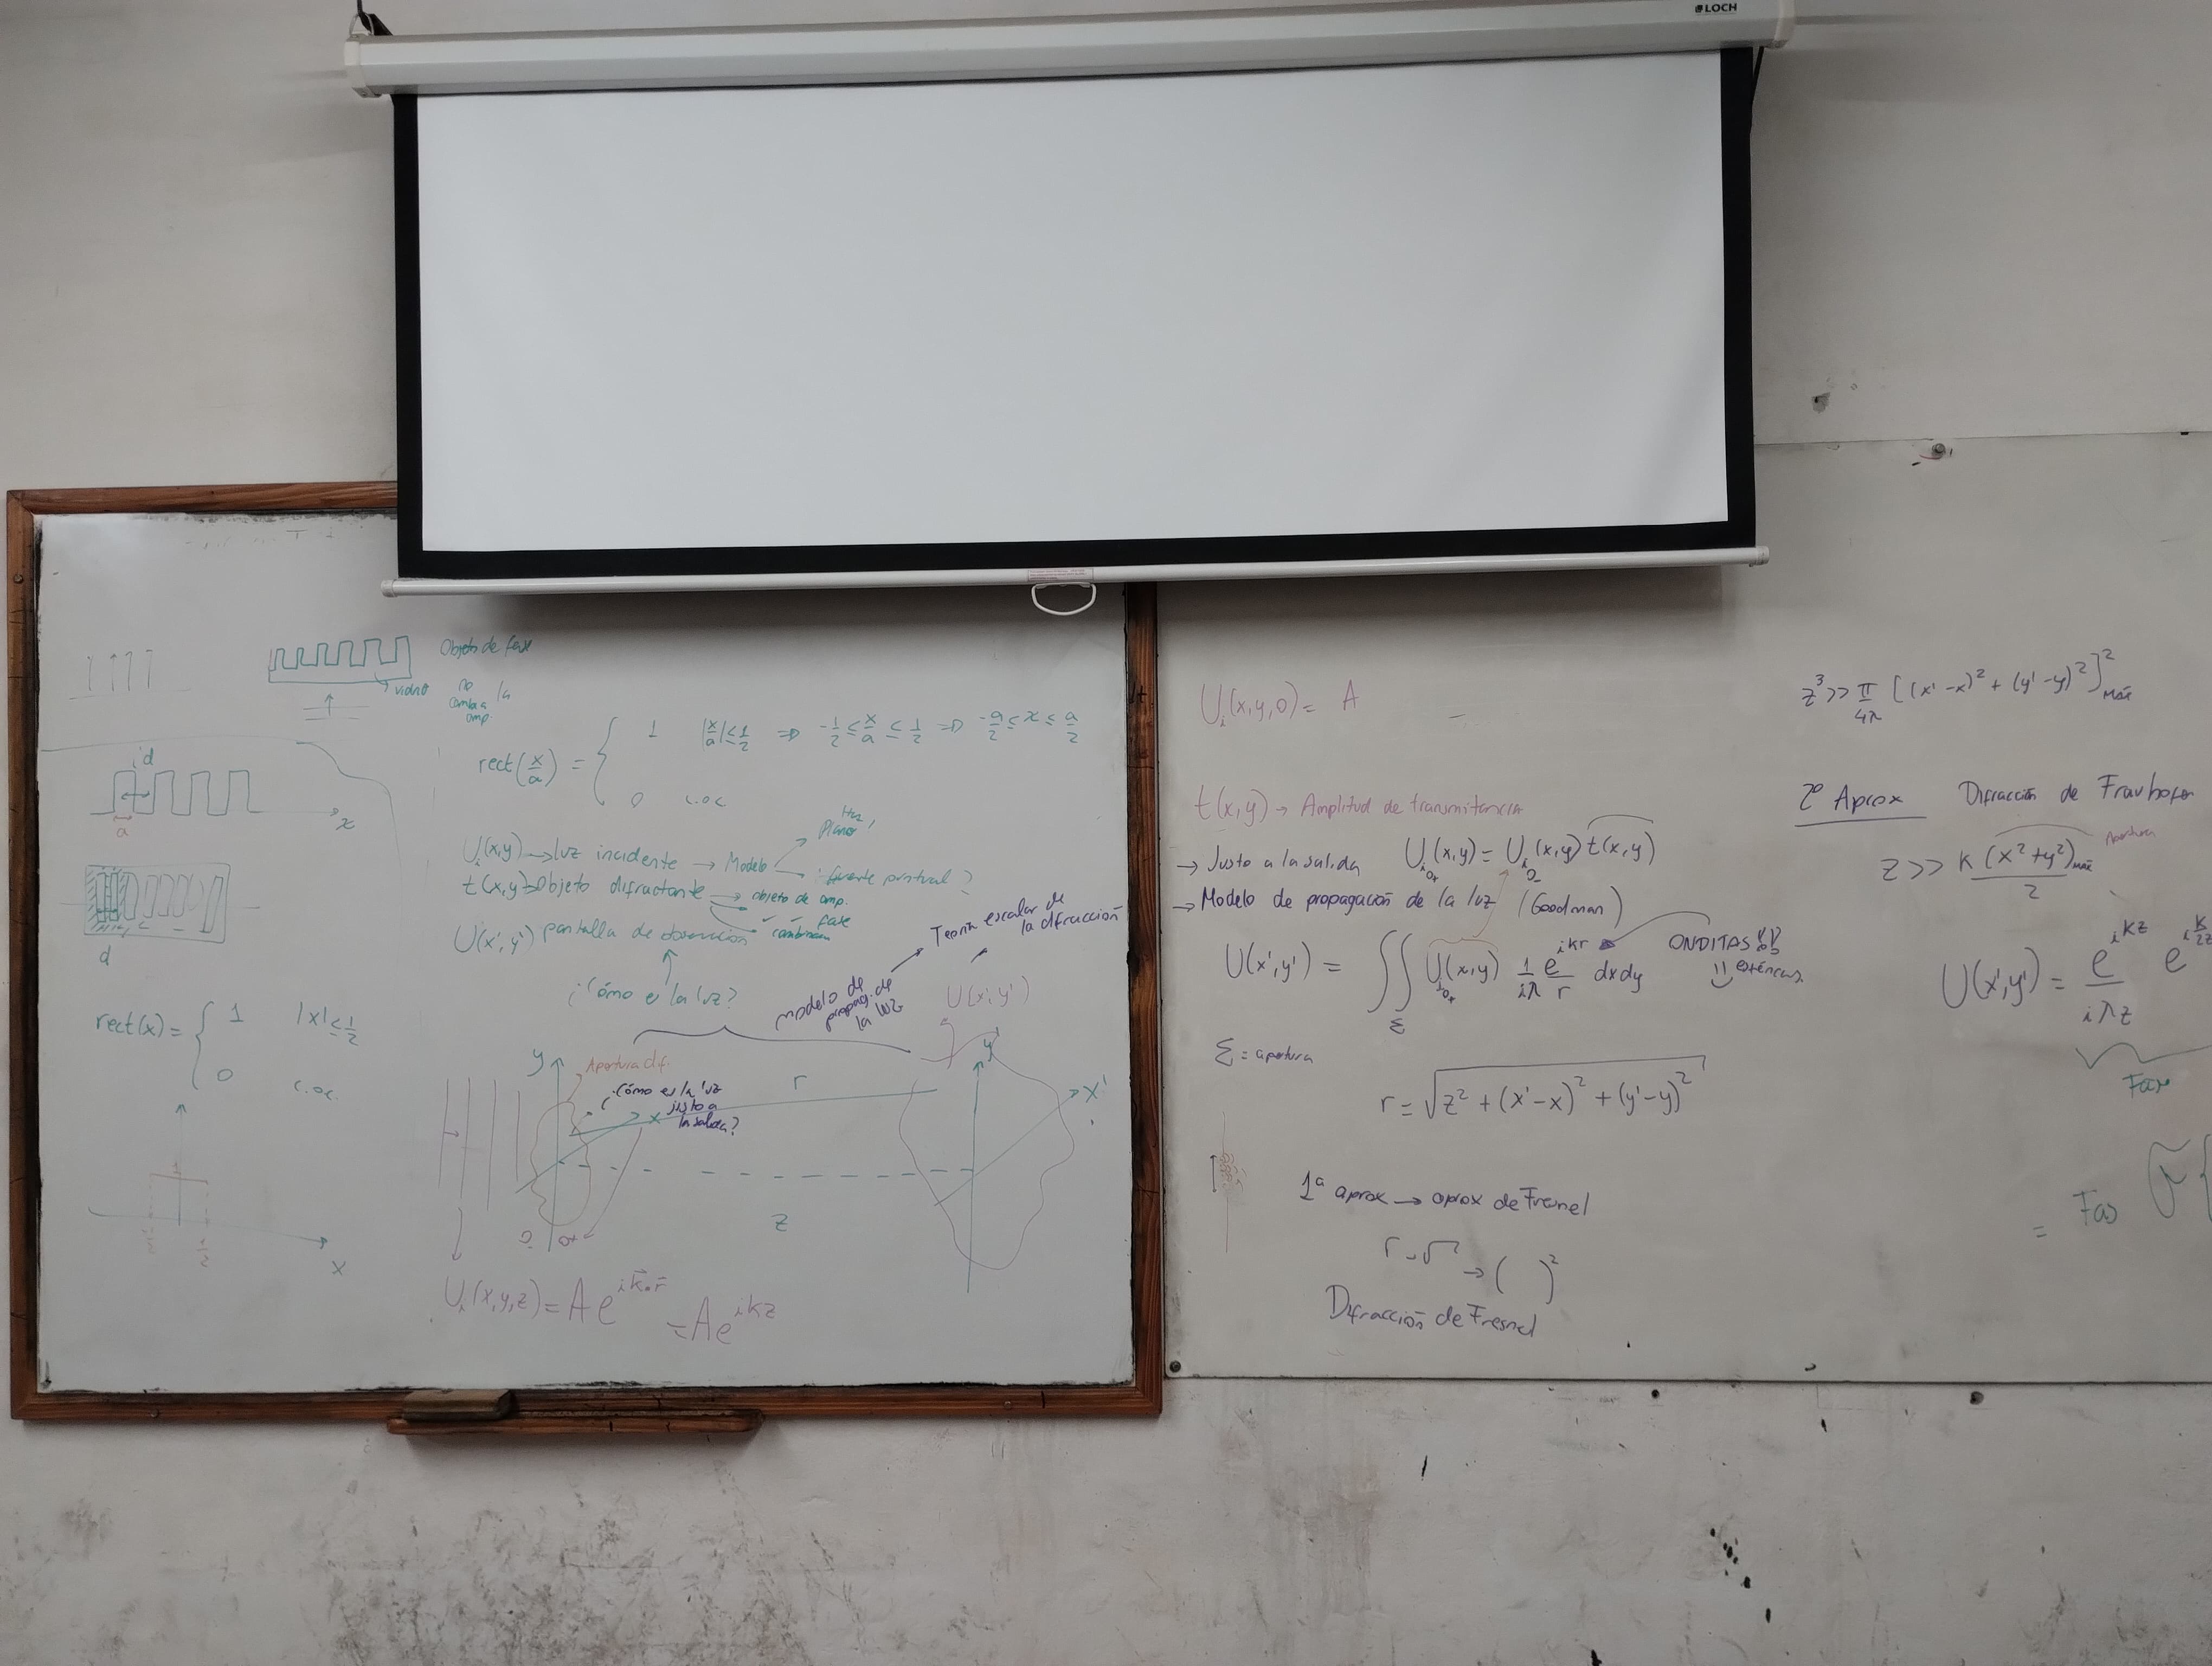 LOCH
Objeto de fase
vidrio
no
cambia la
amp.
d
a
x
d
rect(x/a) = { 1 |x/a| ≤ 1/2 ⇒ -1/2 ≤ x/a ≤ 1/2 ⇒ -a/2 ≤ x ≤ a/2
0 c.o.c
U_i(x,y) → luz incidente → Modelo
Plana
fuente puntual?
t(x,y) → Objeto difractante → objeto de amp.
fase
U(x',y') pantalla de observación
¿Cómo es la luz?
modelo de
propag. de
la luz
Teoría escalar de
la difracción
U(x',y')
rect(x) = { 1 |x| ≤ 1/2
0 c.o.c.
1
1/2
x
y
Apertura dif.
¿Cómo es la luz
justo a
la salida?
x
r
y'
x'
z
U_i(x,y,z) = A e^{i k⃗·r⃗} = A e^{ikz}
U_i(x,y,0) = A
t(x,y) → Amplitud de transmitancia
→ Justo a la salida U_{i_{0+}}(x,y) = U_{i_{0-}}(x,y) t(x,y)
→ Modelo de propagación de la luz (Goodman)
U(x',y') = ∬_Σ U_{i_{0+}}(x,y) 1/(iλ) e^{ikr}/r dxdy
ONDITAS
esféricas
Σ = apertura
r = √(z² + (x'-x)² + (y'-y)²)
1ª aprox → aprox de Fresnel
r √ → ( )²
Difracción de Fresnel
z³ >> π/4λ [(x'-x)² + (y'-y)²]²_{máx}
2º Aprox Difracción de Fraunhofer
Apertura
z >> k (x²+y²)_{máx} / 2
U(x',y') = e^{ikz}/(iλz) e^{i k/2z
Fase
= Fas F {